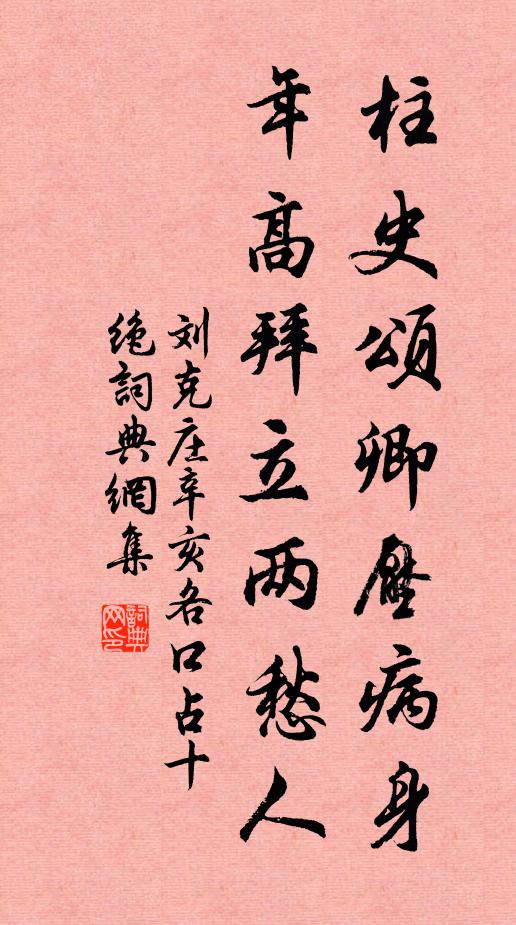 柱史頌卿壓病身
年高拜立两愁人
刘克庄辛亥各口占十
绝詞典網集
詞典网印